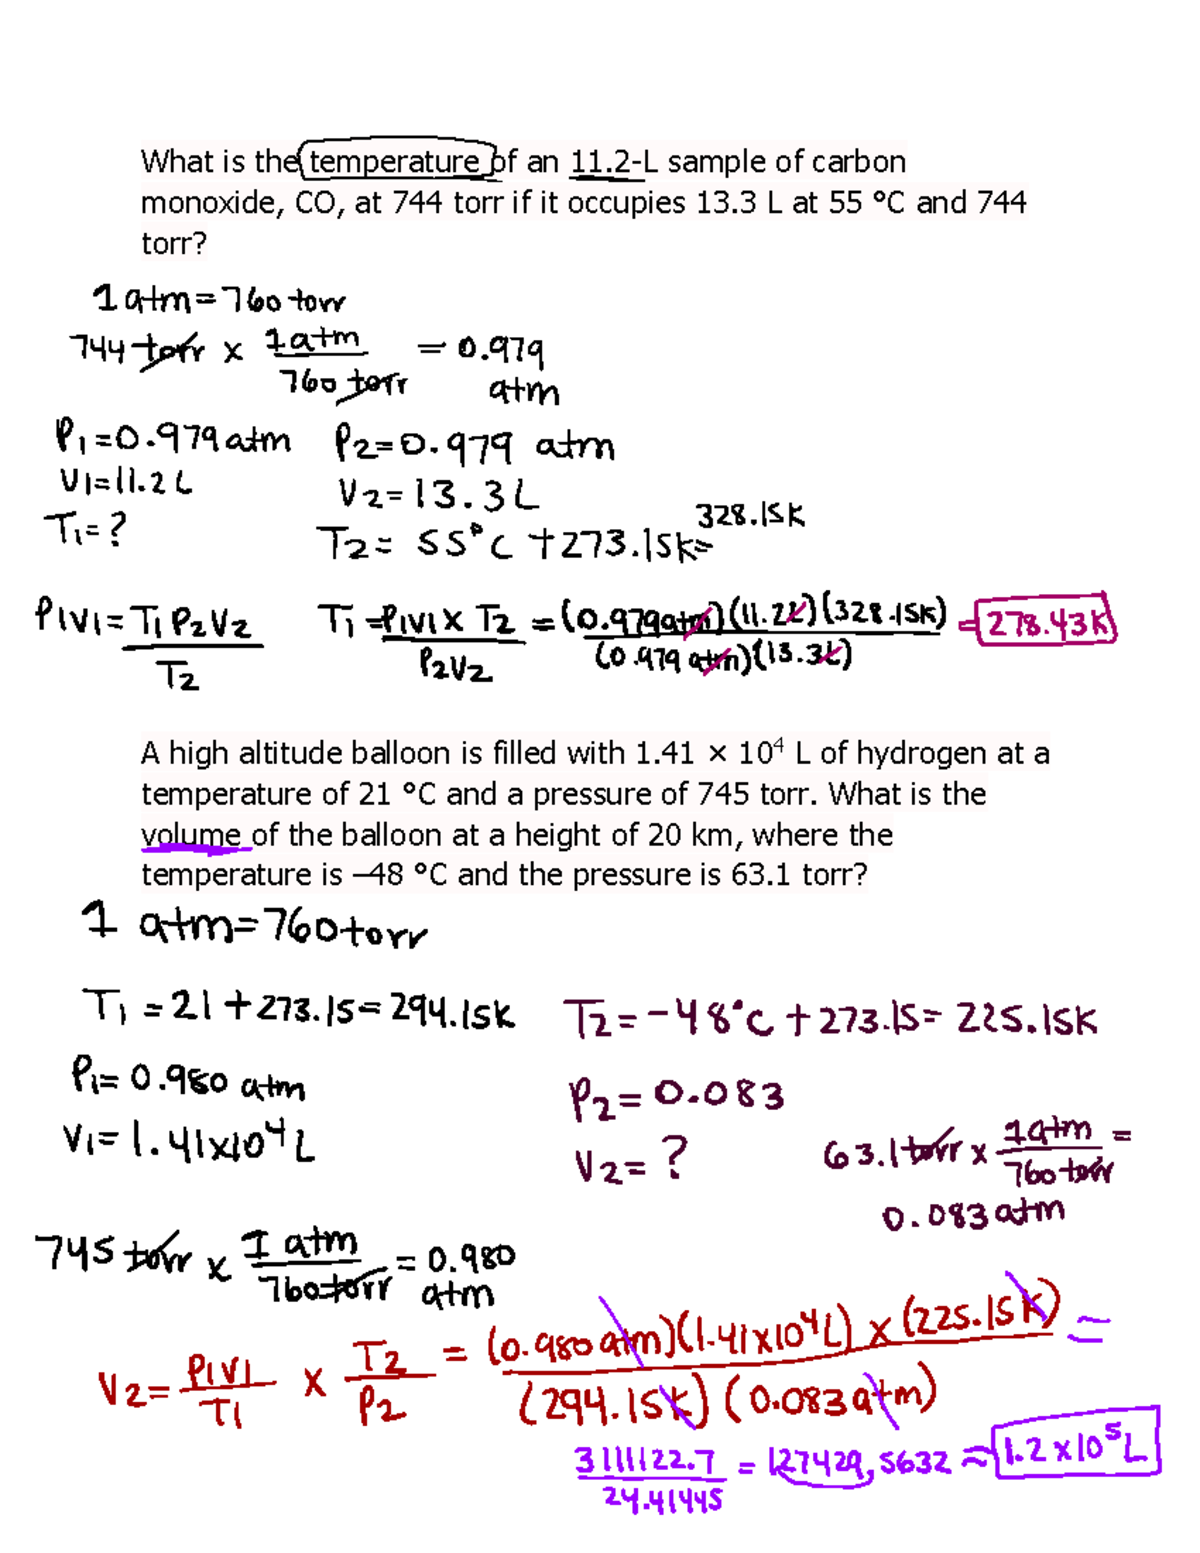 What is the temperature of an 11.2-L sample of carbon
monoxide, CO, at 744 torr if it occupies 13.3 L at 55 °C and 744
torr?
1 atm = 760 torr
744 torr x 1 atm / 760 torr = 0.979 atm
P1 = 0.979 atm P2 = 0.979 atm
V1 = 11.2 L V2 = 13.3 L
T1 = ? T2 = 55°C + 273.15K = 328.15K
P1V1 = T1 P2V2 / T2 T1 = P1V1 x T2 / P2V2 = (0.979 atm)(11.2L)(328.15K) / (0.979 atm)(13.3L) = 278.43K
A high altitude balloon is filled with 1.41 × 10⁴ L of hydrogen at a
temperature of 21 °C and a pressure of 745 torr. What is the
volume of the balloon at a height of 20 km, where the
temperature is –48 °C and the pressure is 63.1 torr?
1 atm = 760 torr
T1 = 21 + 273.15 = 294.15K T2 = -48°C + 273.15 = 225.15K
P1 = 0.980 atm P2 = 0.083
V1 = 1.41x10⁴ L V2 = ? 63.1 torr x 1 atm / 760 torr =
0.083 atm
745 torr x 1 atm / 760 torr = 0.980 atm
V2 = P1V1 / T1 x T2 / P2 = (0.980 atm)(1.41x10⁴L) x (225.15K) / (294.15K)(0.083 atm) =
3111122.7 / 24.41445 = 127429,5632 ≈ 1.2 x10⁵ L